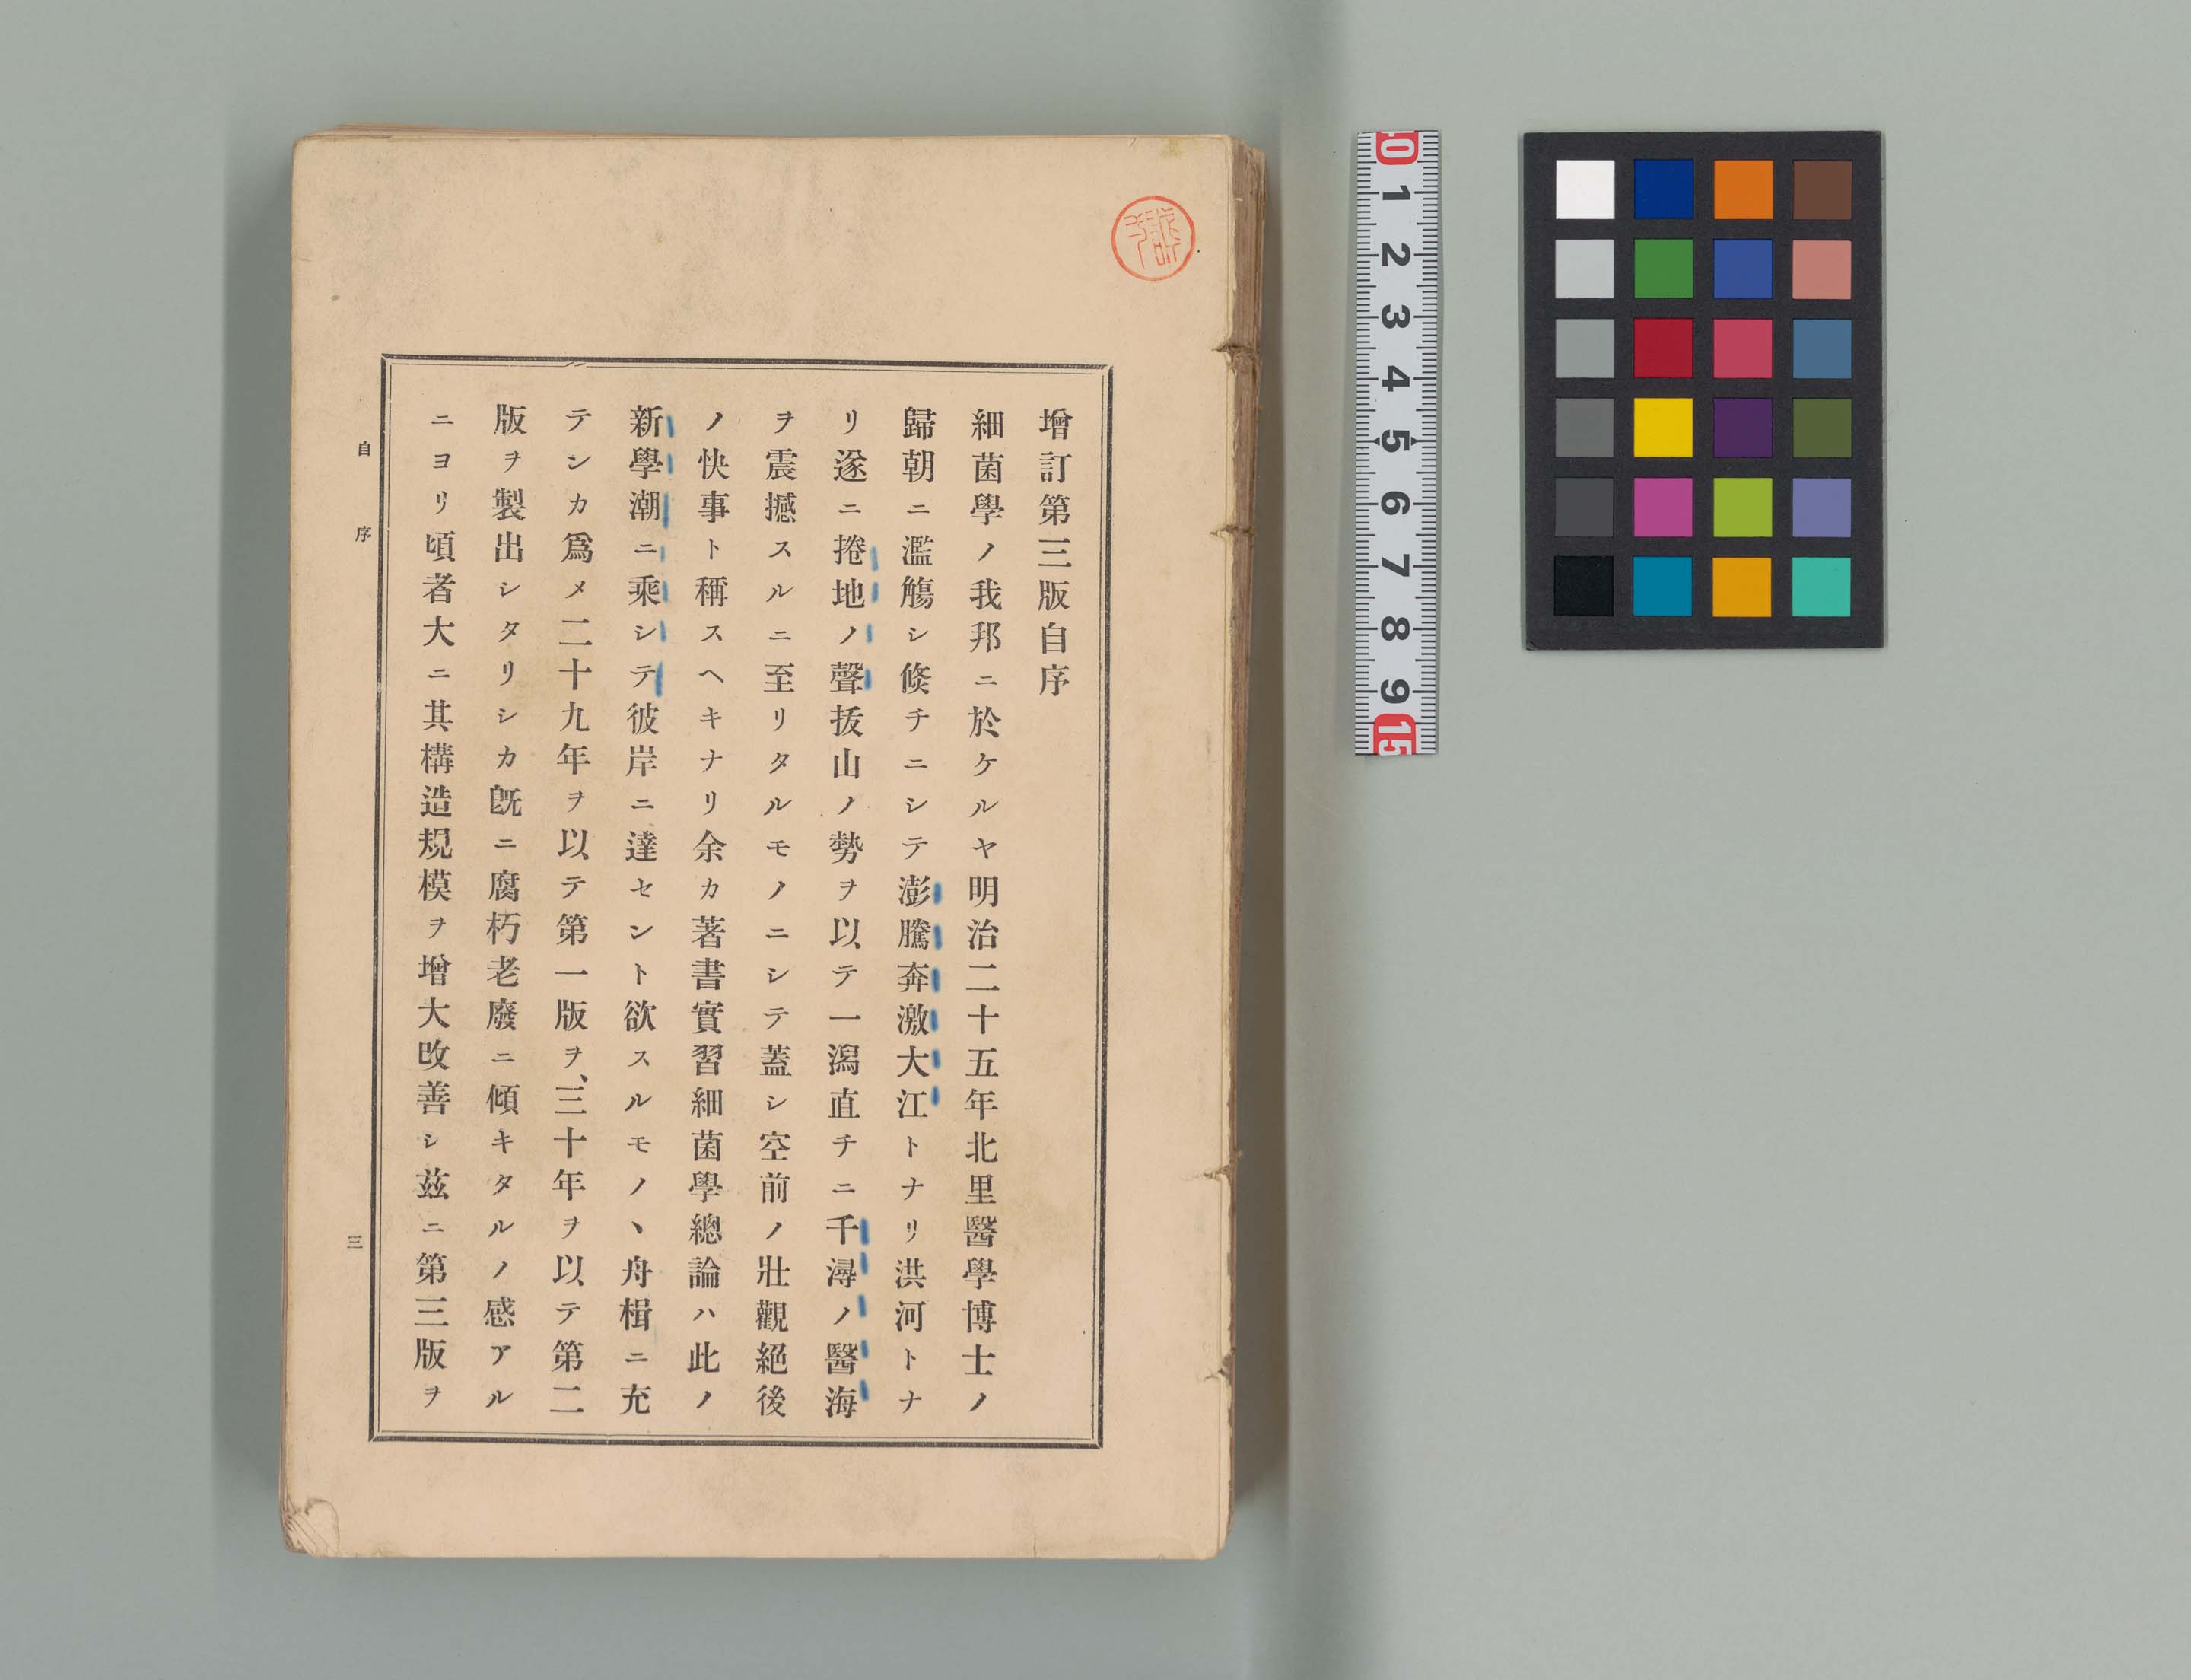 增訂第三版自序
細菌學ノ我邦ニ於ケルヤ明治二十五年北里醫學博士ノ
歸朝ニ濫觴シ倐チニシテ澎騰奔激大江トナリ洪河トナ
リ遂ニ捲地ノ聲拔山ノ勢ヲ以テ一瀉直チニ千潯ノ醫海
ヲ震撼スルニ至リタルモノニシテ蓋シ空前ノ壯觀絕後
ノ快事ト稱スヘキナリ余カ著書實習細菌學總論ハ此ノ
新學潮ニ乘シテ彼岸ニ達セント欲スルモノヽ舟楫ニ充
テンカ爲メ二十九年ヲ以テ第一版ヲ、三十年ヲ以テ第二
版ヲ製出シタリシカ既ニ腐朽老廢ニ傾キタルノ感アル
ニヨリ頃者大ニ其構造規模ヲ增大改善シ茲ニ第三版ヲ
自序
三
0 1 2 3 4 5 6 7 8 9 15